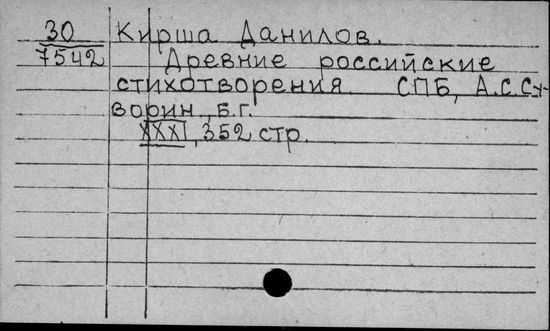 30 Кирша Данилов.
7542 Древние российские
стихотворения. СПБ, А.С.Су-
ворин, Б.Г.
XXXI, 352 стр.